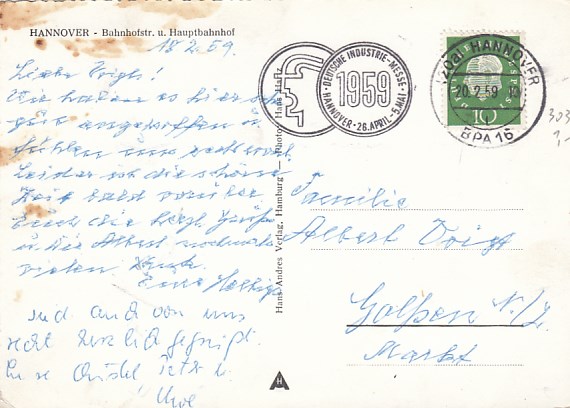 HANNOVER - Bahnhofstr. u. Hauptbahnhof
18.2.59.
Liebe Voigts!
Wir haben es hier sehr
gut angetroffen u.
fühlen uns recht wohl.
Leider ist die schöne
Zeit bald vorüber
Euch die herzl. Grüße
u. Dir Albert nochmals
vielen Dank.
Eure
und auch von uns
recht herzlich gegrüßt.
Eure
Uwe
Hans Andres Verlag, Hamburg — Photo: Hans Hartz
DEUTSCHE INDUSTRIE-MESSE
1959
HANNOVER - 26. APRIL - 5. MAI
(20a) HANNOVER
20.2.59
BPA 16
10
303
1,-
Familie
Albert Voigt
Golßen N./L.
Markt
H